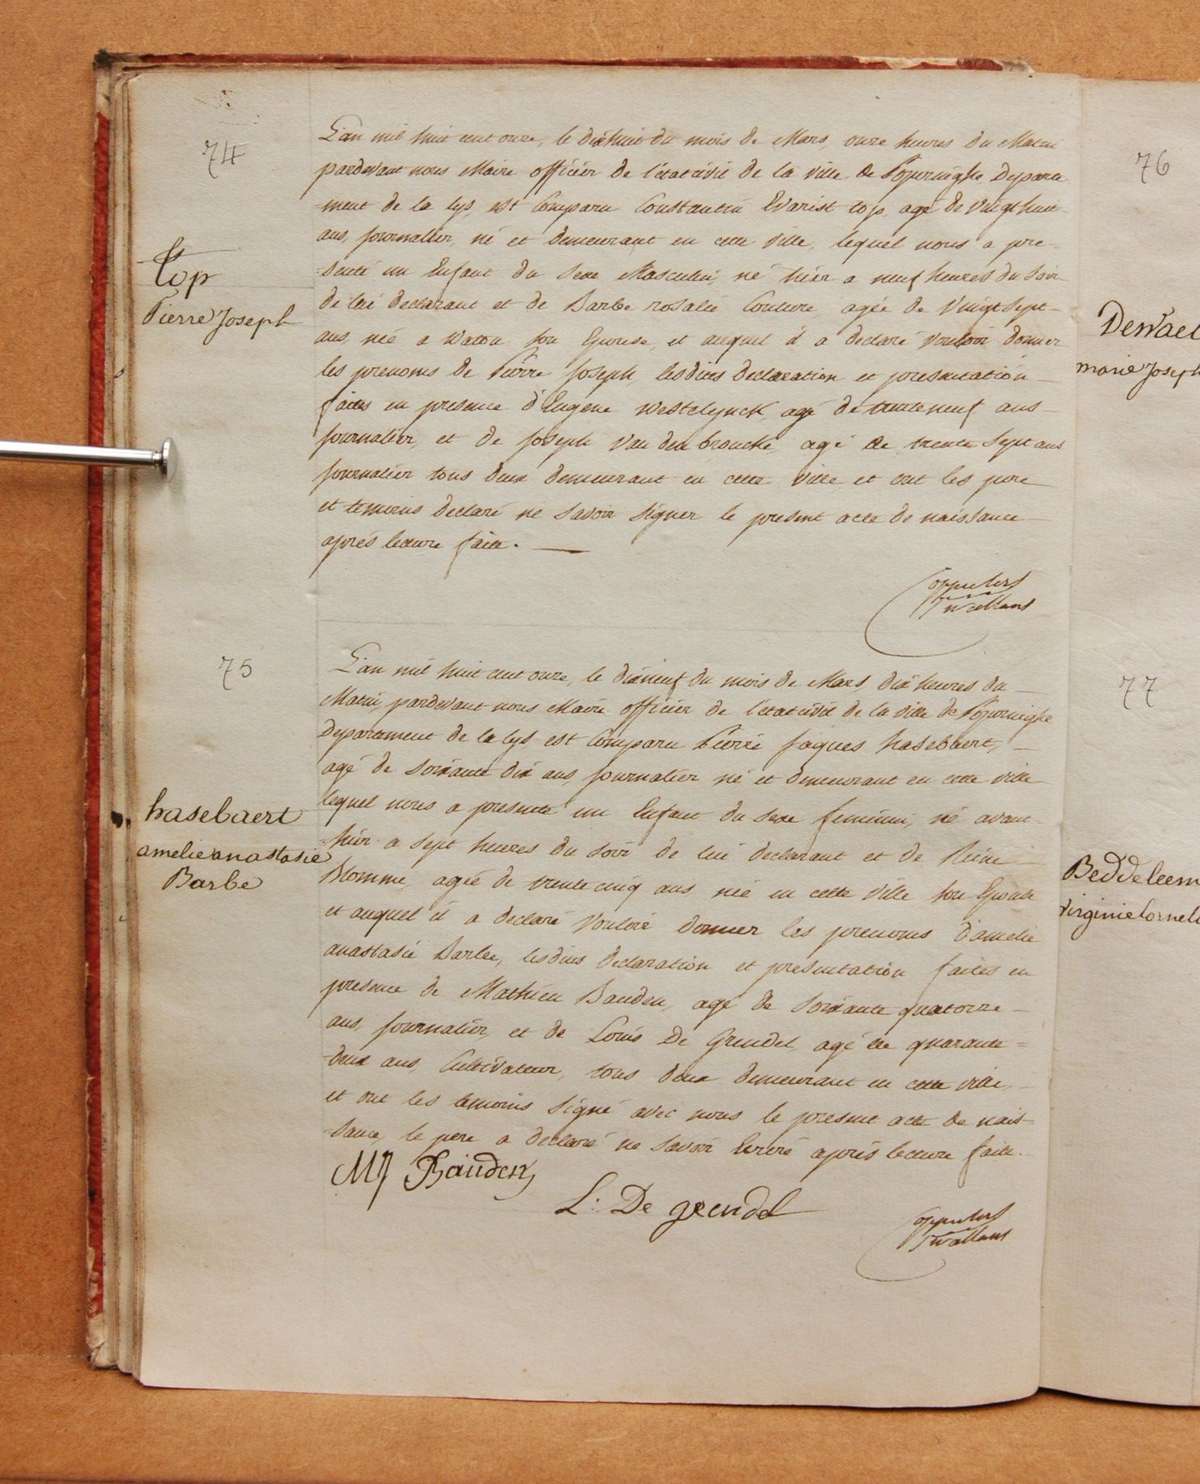 74
L'an mil huit cent onze, le dixhuit du mois de Mars, onze heures du Matin
pardevant nous Maire officier de l'état civil de la ville de Poperinghe Departe
ment de la Lys est Comparu Constantin Evarist top, agé de vingt huit
ans, journalier, né et demeurant en cette ville, lequel nous a pre-
senté un Enfant du sexe Masculin, né hier a neuf heures du soir
de lui declarant et de Barbe rosalie Couture agée de Vingt sept
ans, née a Watou son Epouse, et auquel il a declaré vouloir donner
les prenoms de Pierre Joseph, lesdites declaration et presentation
faites en presence d'Eugène Westelynck, agé de trente neuf ans
journalier, et de Joseph Van den broucke, agé de trente sept ans
journalier tous deux demeurant en cette ville et ont les pere
et temoins declaré ne savoir signer le present acte de naissance
après lecture faite.
top
Pierre Joseph
75
L'an mil huit cent onze, le dixneuf du mois de Mars dix heures du
Matin, pardevant nous Maire officier de l'état civil de la ville de Poperinghe
Departement de la Lys est Comparu Pierre Jaques hasebaert,
agé de soixante dix ans, journalier né et demeurant en cette ville
lequel nous a presenté un Enfant du sexe feminin, né avant
hier a sept heures du soir de lui declarant et de Reine
Blomme, agée de trente cinq ans née en cette ville son Epouse
et auquel il a declaré vouloir donner les prenoms d'amelie
anastasie Barbe, lesdites declaration et presentation faites en
presence de Mathieu Bauden, agé de soixante quatorze
ans, journalier, et de Louis De Grendel, agé de quarante
deux ans, Cultivateur, tous deux demeurant en cette ville,
et ont les temoins signé avec nous le present acte de nais
sance, le pere a declaré ne savoir Ecrire après lecture faite.
hasebaert
amelie anastasie
Barbe
MJ Bauden
L: De grendel
76
Dewael
marie Joseph
77
Beddeleem
virginie Cornel